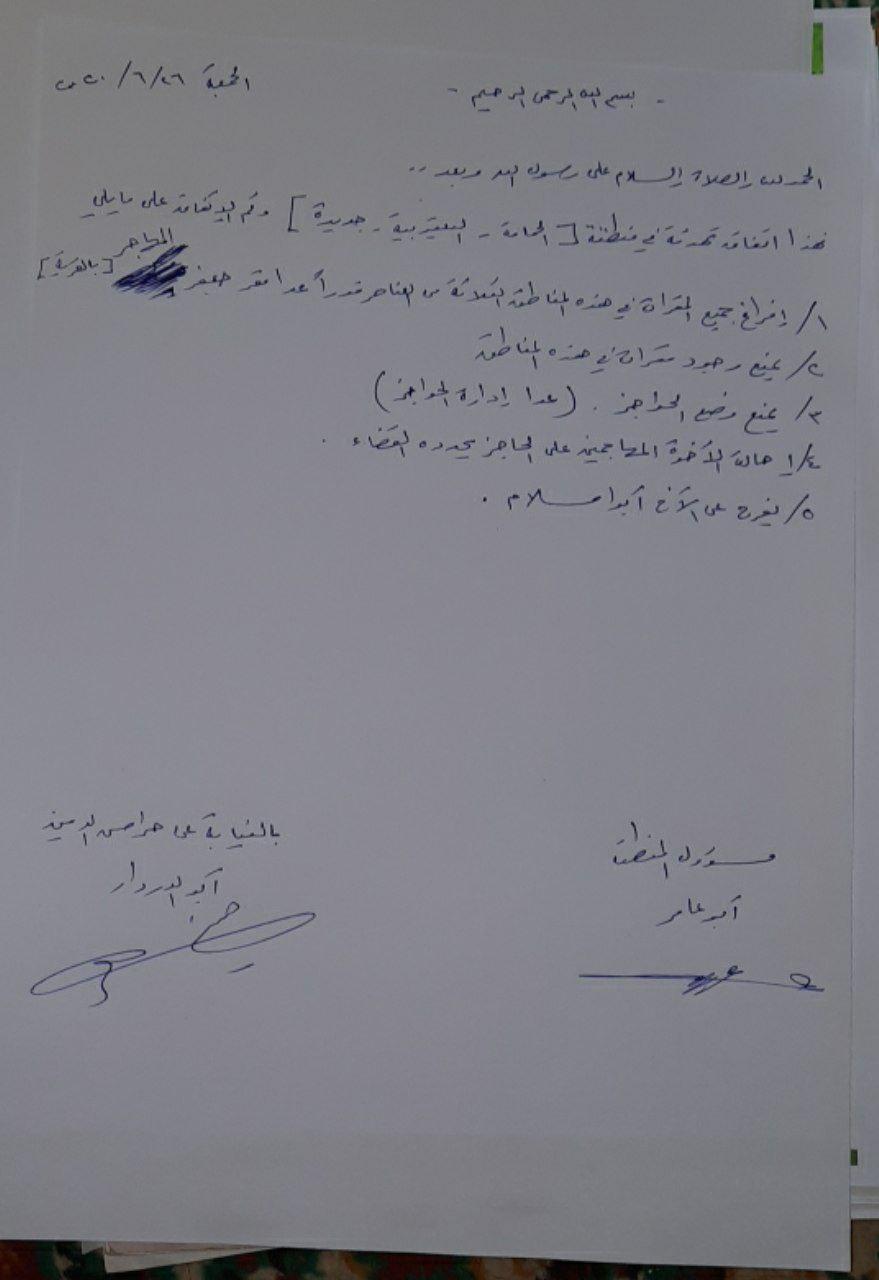 - بسم الله الرحمن الرحيم -
الجمعة ٢٦/٦/٢٠٢٠
الحمد لله والصلاة والسلام على رسول الله وبعد ..
فهذا اتفاق تهدئة في منطقة [الحمامة - اليعقوبية - جديدة] وتم الاتفاق على ما يلي
١/ إفراغ جميع المقرات في هذه المناطق الثلاثة من العناصر فوراً عدا مقر جعفر المهاجر [بالقرية]
٢/ يمنع وجود مقرات في هذه المناطق
٣/ يمنع وضع الحواجز . (عدا إدارة الحواجز)
٤/ إحالة الأخوة المهاجمين على الحاجز يحدده القضاء .
٥/ يفرج عن الأخ أبو اسلام .
مسؤول المنطقة
أبو عامر
بالنيابة عن حراس الدين
أبو الدرداء